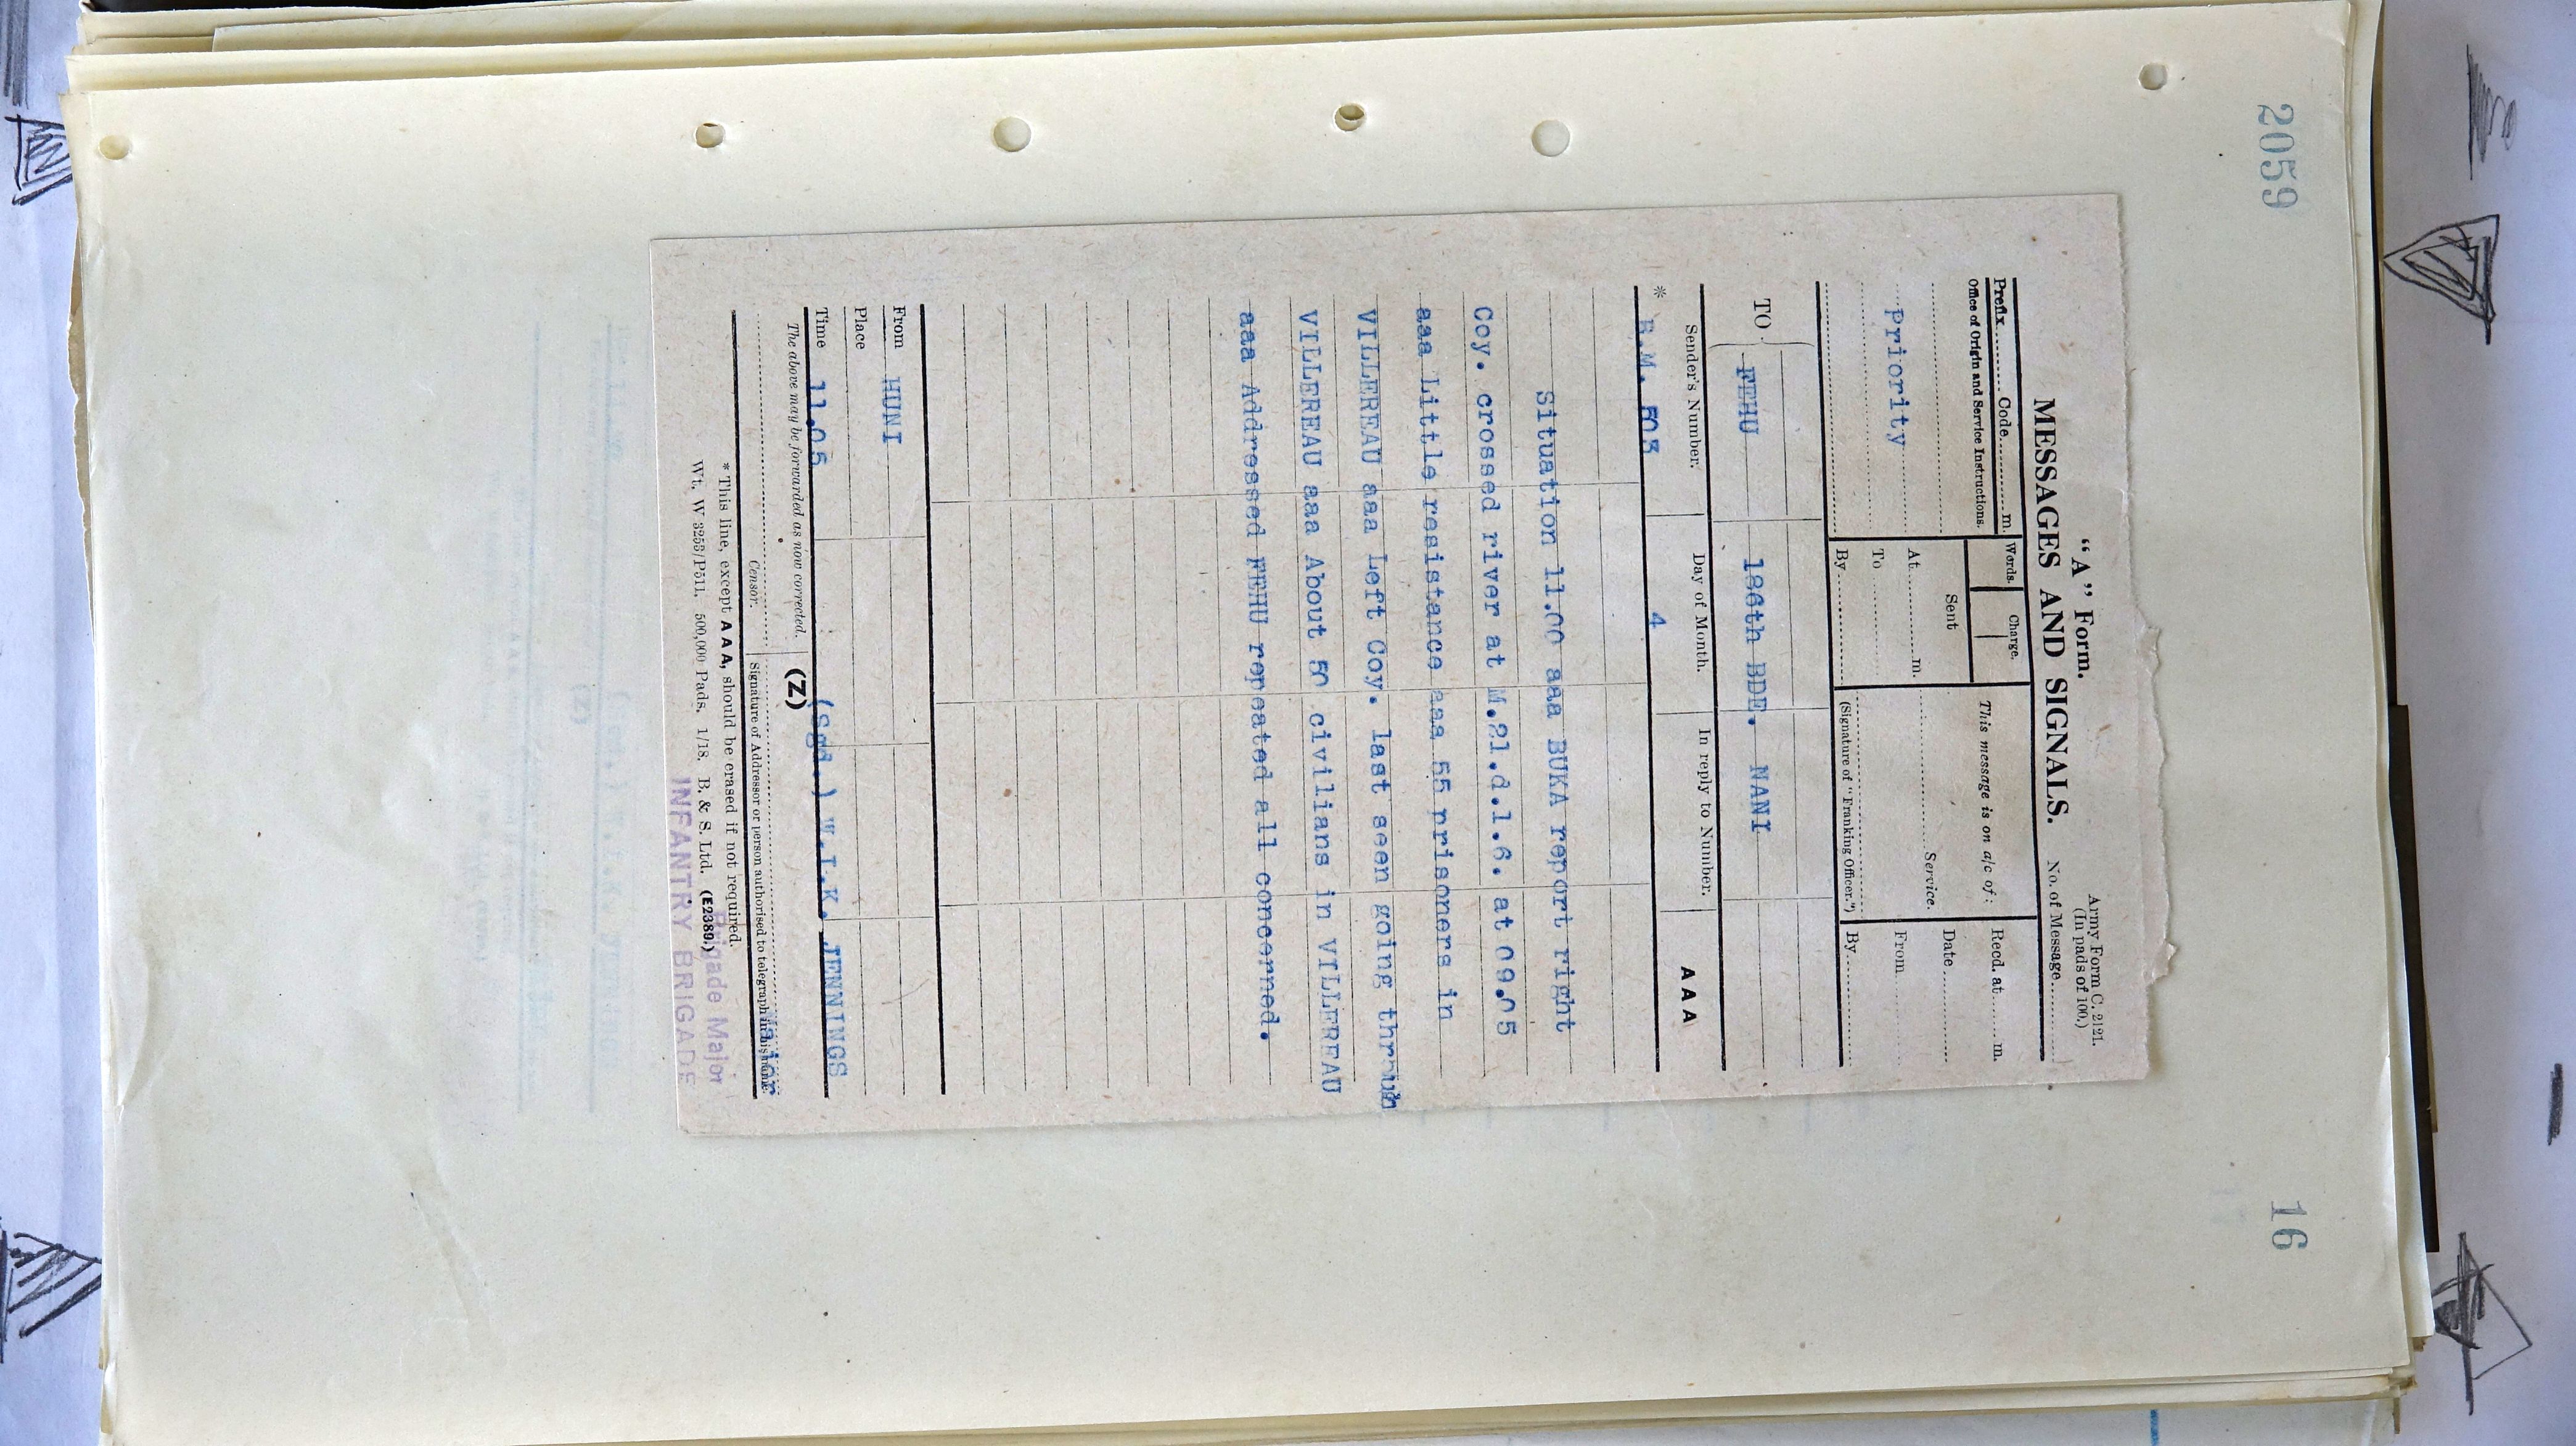 2059
16
"A" Form.
Army Form C. 2121.
(In pads of 100.)
MESSAGES AND SIGNALS.
No. of Message
Prefix Code m.
Words. Charge.
This message is on a/c of:
Recd. at m.
Office of Origin and Service Instructions.
Sent
Date
Priority
At m.
Service.
From
To
By
(Signature of "Franking Officer.")
By
TO FEHU 186th BDE. NANI
Sender's Number. Day of Month. In reply to Number. A A A
* B.M. 503 4
Situation 11.00 aaa BUKA report right
Coy. crossed river at M.21.d.1.6. at 09.05
aaa Little resistance aaa 55 prisoners in
VILLEREAU aaa Left Coy. last seen going
VILLEREAU aaa About 50 civilians in VILLEREAU
aaa Addressed FEHU repeated all concerned.
From HUNI
Place
Time 11.05
(Sgd.) W.I.K. JENNINGS
The above may be forwarded as now corrected. (Z)
Major
Censor. Signature of Addressor or person authorised to telegraph in his name.
* This line, except A A A, should be erased if not required.
Brigade Major
Wt. W 3253/P511. 500,000 Pads. 1/18. B. & S. Ltd. (E2389.)
INFANTRY BRIGADE